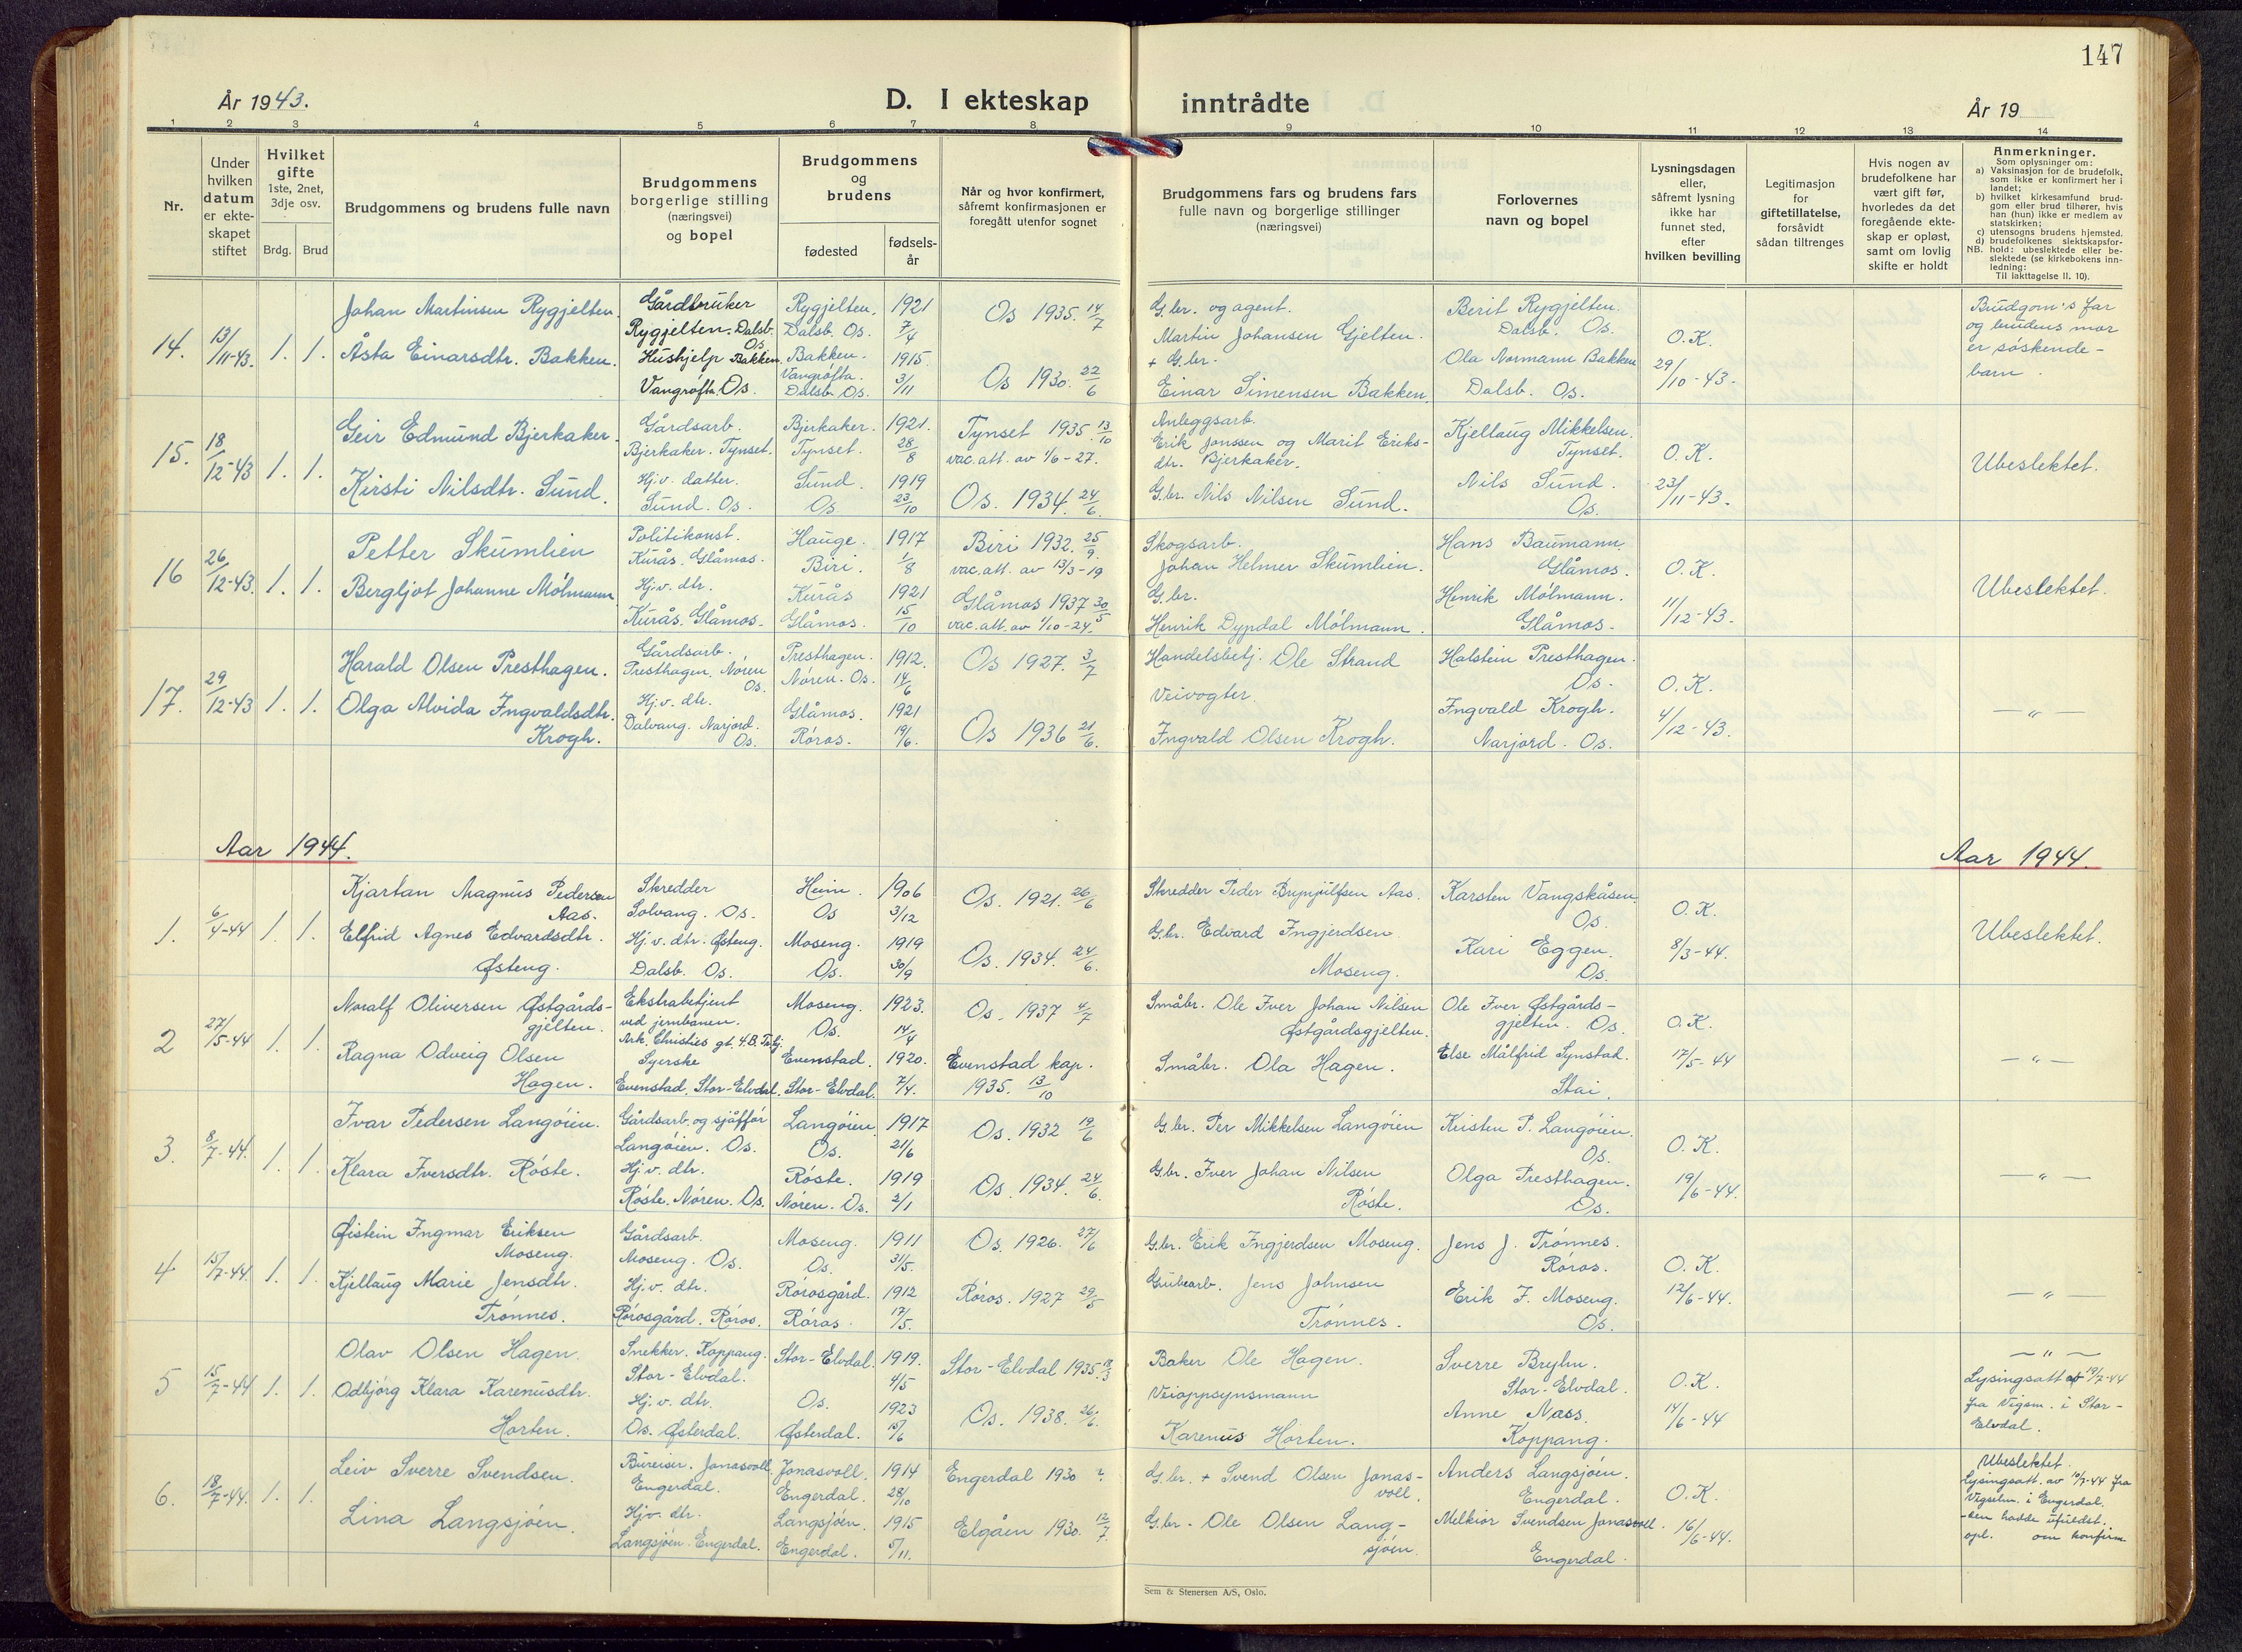 147
År 1943.
D. I ekteskap inntrådte
År 19
1 2 3 4 5 6 7 8 9 10 11 12 13 14
Nr.
Under hvilken datum er ekte-skapet stiftet
Hvilket gifte
1ste, 2net, 3dje osv.
Brdg. Brud
Brudgommens og brudens fulle navn
Brudgommens borgerlige stilling (næringsvei) og bopel
Brudgommens og brudens
fødested
fødsels-år
Når og hvor konfirmert, såfremt konfirmasjonen er foregått utenfor sognet
Brudgommens fars og brudens fars fulle navn og borgerlige stillinger (næringsvei)
Forlovernes navn og bopel
Lysningsdagen eller, såfremt lysning ikke har funnet sted, efter hvilken bevilling
Legitimasjon for giftetillatelse, forsåvidt sådan tiltrenges
Hvis nogen av brudefolkene har vært gift før, hvorledes da det foregående ekte-skap er opløst, samt om lovlig skifte er holdt
Anmerkninger.
Som oplysninger om:
a) Vaksinasjon for de brudefolk, som ikke er konfirmert her i landet;
b) hvilket kirkesamfund brud-gom eller brud tilhører, hvis han (hun) ikke er medlem av statskirken;
c) utensogns brudens hjemsted.
d) brudefolkenes slektskapsfor-hold: ubeslektede eller be-slektede (se kirkebokens inn-ledning:
NB. Til iakttagelse II. 10).
14. 13/11-43. 1. 1.
Johan Martinsen Rygjelten.
Åsta Einarsdtr. Bakken.
Gårdbruker
Rygjelten. Dalsb. Os.
Hushjelp Bakken.
Vangrøfta. Os.
Rygjelten. Dalsb. Os. 1921 7/4
Bakken. Vangrøfta. Dalsb. Os. 1915. 3/11
Os 1935. 14/7
Os 1930. 22/6
G.br. og agent.
Martin Johansen Gjelten.
+ G.br.
Einar Simensen Bakken.
Berit Rygjelten. Dalsb. Os.
Ola Normann Bakken
Dalsb. Os.
O.K.
29/10-43.
Budgom's far
og brudens mor
er søskende-
barn.
15. 18/12-43 1. 1.
Geir Edmund Bjerkaker.
Kirsti Nilsdtr. Sund.
Gårdsarb.
Bjerkaker. Tynset.
Hj.v. datter.
Sund. Os.
Bjerkaker. Tynset. 1921. 28/8
Sund. Os 1919 23/10
Tynset 1935. 13/10
vac.att. av 1/6-27.
Os. 1934. 24/6.
Anleggsarb.
Erik Jonssen og Marit Eriks-
dtr. Bjerkaker.
G.br. Nils Nilsen Sund.
Kjellaug Mikkelsen.
Tynset.
Nils Sund.
Os.
O.K.
23/11-43.
Ubeslektet.
16 26/12-43. 1. 1.
Petter Skumlien
Bergljot Johanne Mølmann
Politikonst.
Kurås. Glåmos.
Hj.v. dtr.
Kurås. Glåmos.
Hauge. Biri. 1917 1/8
Kurås Glåmos. 1921 15/10
Biri 1932. 25/9.
vac.att. av 13/3-19
Glåmos 1937 30/5
vac.att. av 1/10-24.
Skogsarb.
Johan Helmer Skumlien.
G.br.
Henrik Dypdal Mølmann.
Hans Baumann.
Glåmos.
Henrik Mølmann.
Glåmos.
O.K.
11/12-43.
Ubeslektet.
17. 29/12-43 1. 1.
Harald Olsen Presthagen.
Olga Alvida Ingvaldsdtr.
Krogh.
Gårdsarb.
Presthagen. Nøren Os.
Hj.v. dtr.
Dalvang. Narjord. Os.
Presthagen. Nøren. Os. 1912. 14/6
Glåmos. Røros. 1921 19/6.
Os 1927. 3/7
Os 1936 21/6.
Handelsbetj. Ole Strand
Veivogter.
Ingvald Olsen Krogh.
Halstein Presthagen.
Os.
Ingvald Krogh.
Narjord. Os.
O.K.
4/12-43.
— " —
Aar 1944. Aar 1944.
1. 6/4-44 1. 1.
Kjartan Magnus Pedersen
Aas.
Elfrid Agnes Edvardsdtr.
Østeng.
Skredder
Solvang. Os.
Hj.v. dtr. Østeng.
Dalsb. Os.
Heim. Os 1906 3/12
Moseng. Os. 1919 30/9
Os. 1921. 26/6
Os. 1934. 24/6.
Skredder Peder Brynjulfsen Aas.
G.br. Edvard Ingjerdsen
Moseng.
Karsten Vangskåsen.
Os.
Kari Eggen.
Os.
O.K.
8/3-44.
Ubeslektet.
2 27/5-44 1. 1.
Noralf Oliversen Østgårds-
gjelten.
Ragna Odveig Olsen
Hagen.
Ekstrabetjent
ved jernbanen.
Ark. Christies gt. 4.B. Tr.hj.
Syerske
Evenstad. Stor-Elvdal.
Moseng. Os. 1923. 14/4
Evenstad. Stor-Elvdal. 1920. 7/4.
Os. 1937 4/7
Evenstad kap.
1935. 13/10
Småbr. Ole Iver Johan Nilsen
Østgårdsgjelten.
Småbr. Ola Hagen.
Ole Iver Østgårds-
gjelten. Os.
Else Målfrid Synstad.
Stai.
O.K.
17/5-44
— " —
3. 8/7-44. 1. 1.
Ivar Pedersen Langøien.
Klara Iversdtr. Røste.
Gårdsarb. og sjåffør
Langøien. Os.
Hj.v. dtr.
Røste. Nøren. Os.
Langøien. Os. 1917 21/6
Røste. Nøren. Os. 1919 2/1
Os. 1932 19/6
Os. 1934. 24/6.
G.br. Per Mikkelsen Langøien
G.br. Iver Johan Nilsen
Røste.
Kristen P. Langøien.
Os.
Olga Presthagen.
Os.
O.K.
19/6-44.
— " —
4 15/7-44. 1. 1.
Øistein Ingmar Eriksen
Moseng.
Kjellaug Marie Jensdtr.
Trønnes.
Gårdsarb.
Moseng. Os.
Hj.v. dtr.
Rørosgård. Røros.
Moseng. Os. 1911 31/5.
Rørosgård. Røros. 1912 17/5.
Os. 1926. 27/6
Røros. 1927 29/5
G.br. Erik Ingjerdsen Moseng.
Grubearb. Jens Johnsen
Trønnes.
Jens J. Trønnes.
Røros.
Erik I. Moseng.
Os.
O.K.
12/6-44.
— " —
5 15/7-44 1. 1.
Olav Olsen Hagen.
Odbjørg Klara Karenusdtr.
Horten.
Snekker. Koppang.
Stor-Elvdal.
Hj.v. dtr.
Os. Østerdal.
Stor-Elvdal. 1919. 4/5
Os. Østerdal. 1923 15/6
Stor-Elvdal 1935.
Os. 1938. 26/6.
Baker Ole Hagen.
Veioppsynsmann
Karenus Horten.
Sverre Bryhn.
Stor-Elvdal.
Anne Nass.
Koppang.
O.K.
14/6-44
— " —
Lysingsatt av 19/7-44
fra Vigsm. i Stor-
Elvdal.
6. 18/7-44. 1. 1.
Leiv Sverre Svendsen.
Lina Langsjøen.
Bureiser. Jonasvoll.
Engerdal.
Hj.v. dtr.
Langsjøen. Engerdal.
Jonasvoll. Engerdal. 1914 28/10
Langsjøen. Engerdal. 1915 5/11.
Engerdal 1930 ?
Elgåen 1930. 12/7.
G.br. + Svend Olsen Jonas-
voll.
G.br. Ole Olsen Lang-
sjøen.
Anders Langsjøen.
Engerdal.
Melkior Svendsen Jonasvoll.
Engerdal.
O.K.
16/6-44.
Ubeslektet.
Lysingsatt. av 10/7-44 fra
Vigselm. i Engerdal.
-den hadde ufuldst.
opl. om konfirm
Sem & Stenersen A/S, Oslo.